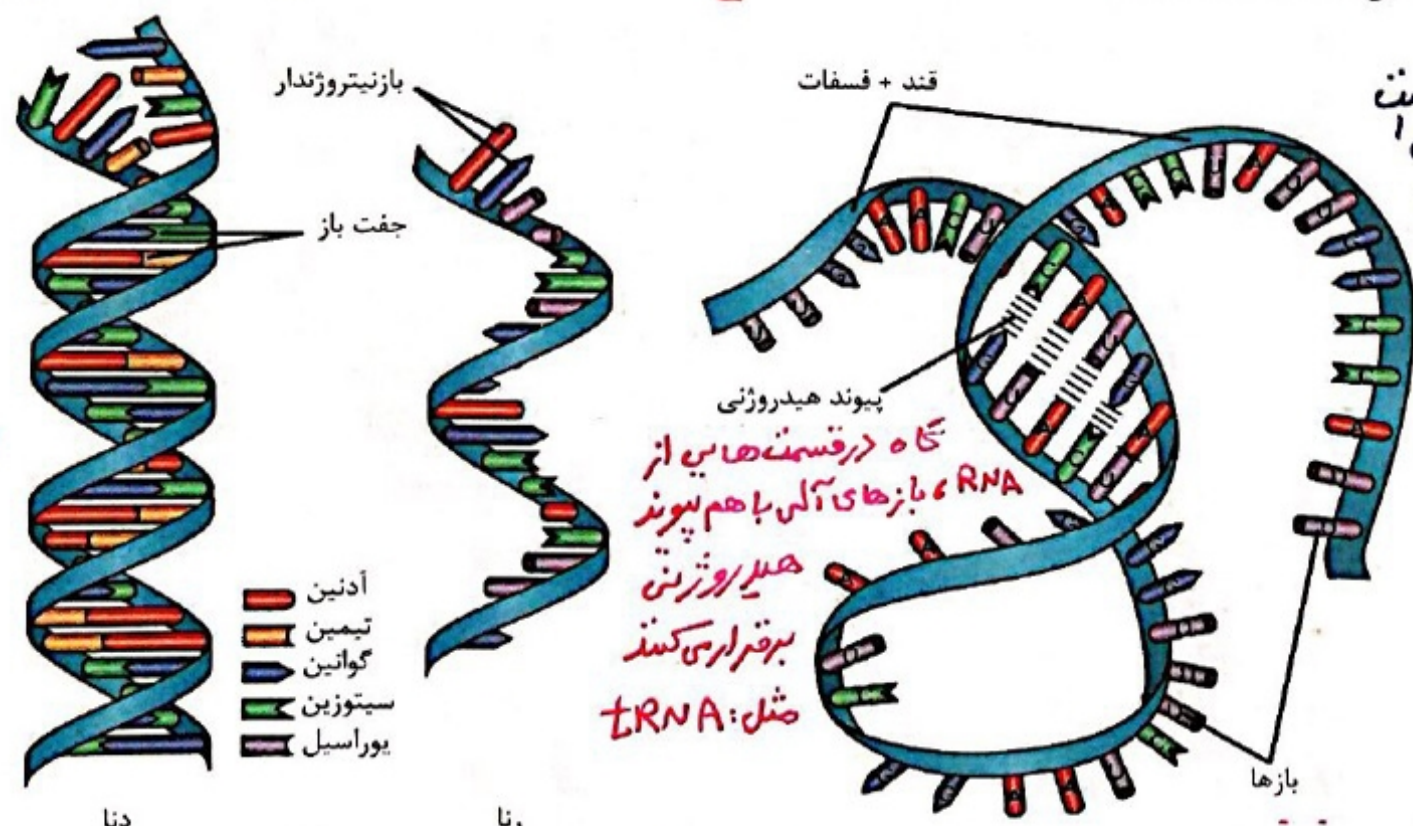 بازنیتروژندار
قند + فسفات
جفت باز
پیوند هیدروژنی
گاه در قسمت‌هایی از
RNA، بازهای آلی با هم پیوند
هیدروژنی
برقرار می‌کنند
مثل: tRNA
آدنین
تیمین
گوانین
سیتوزین
یوراسیل
بازها
دنا
رنا